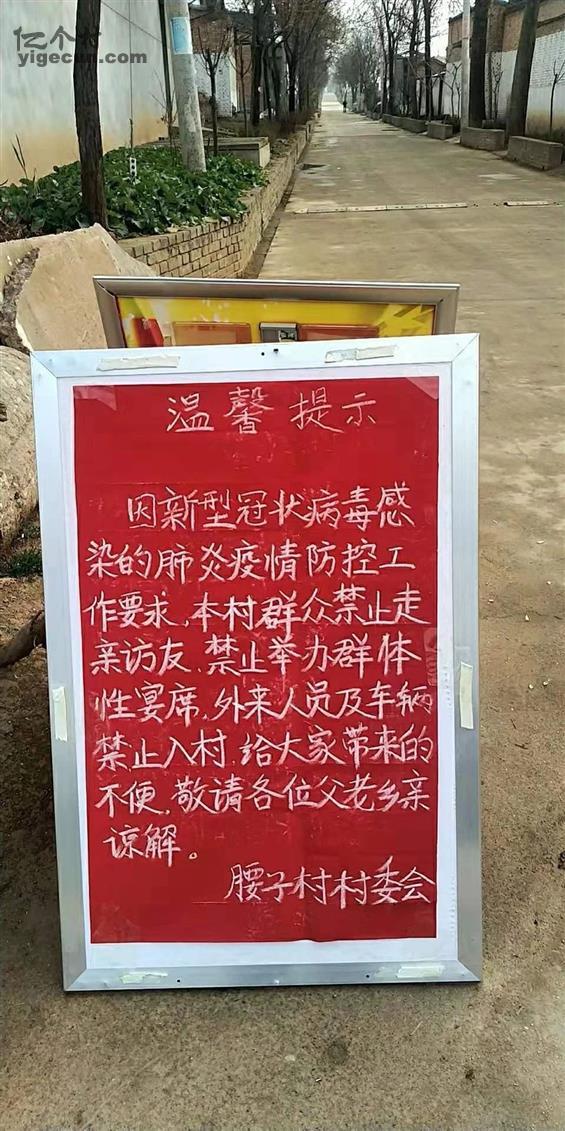 亿个村
yigecun.com
温馨提示
因新型冠状病毒感
染的肺炎疫情防控工
作要求,本村群众禁止走
亲访友、禁止举办群体
性宴席,外来人员及车辆
禁止入村,给大家带来的
不便,敬请各位父老乡亲
谅解。
腰子村村委会